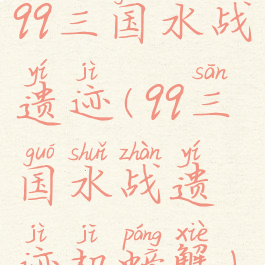 99三国水战
yí jì sān
遗迹(99三
guó shuǐ zhàn yí
国水战遗
jì jī páng xiè
迹机螃蟹)